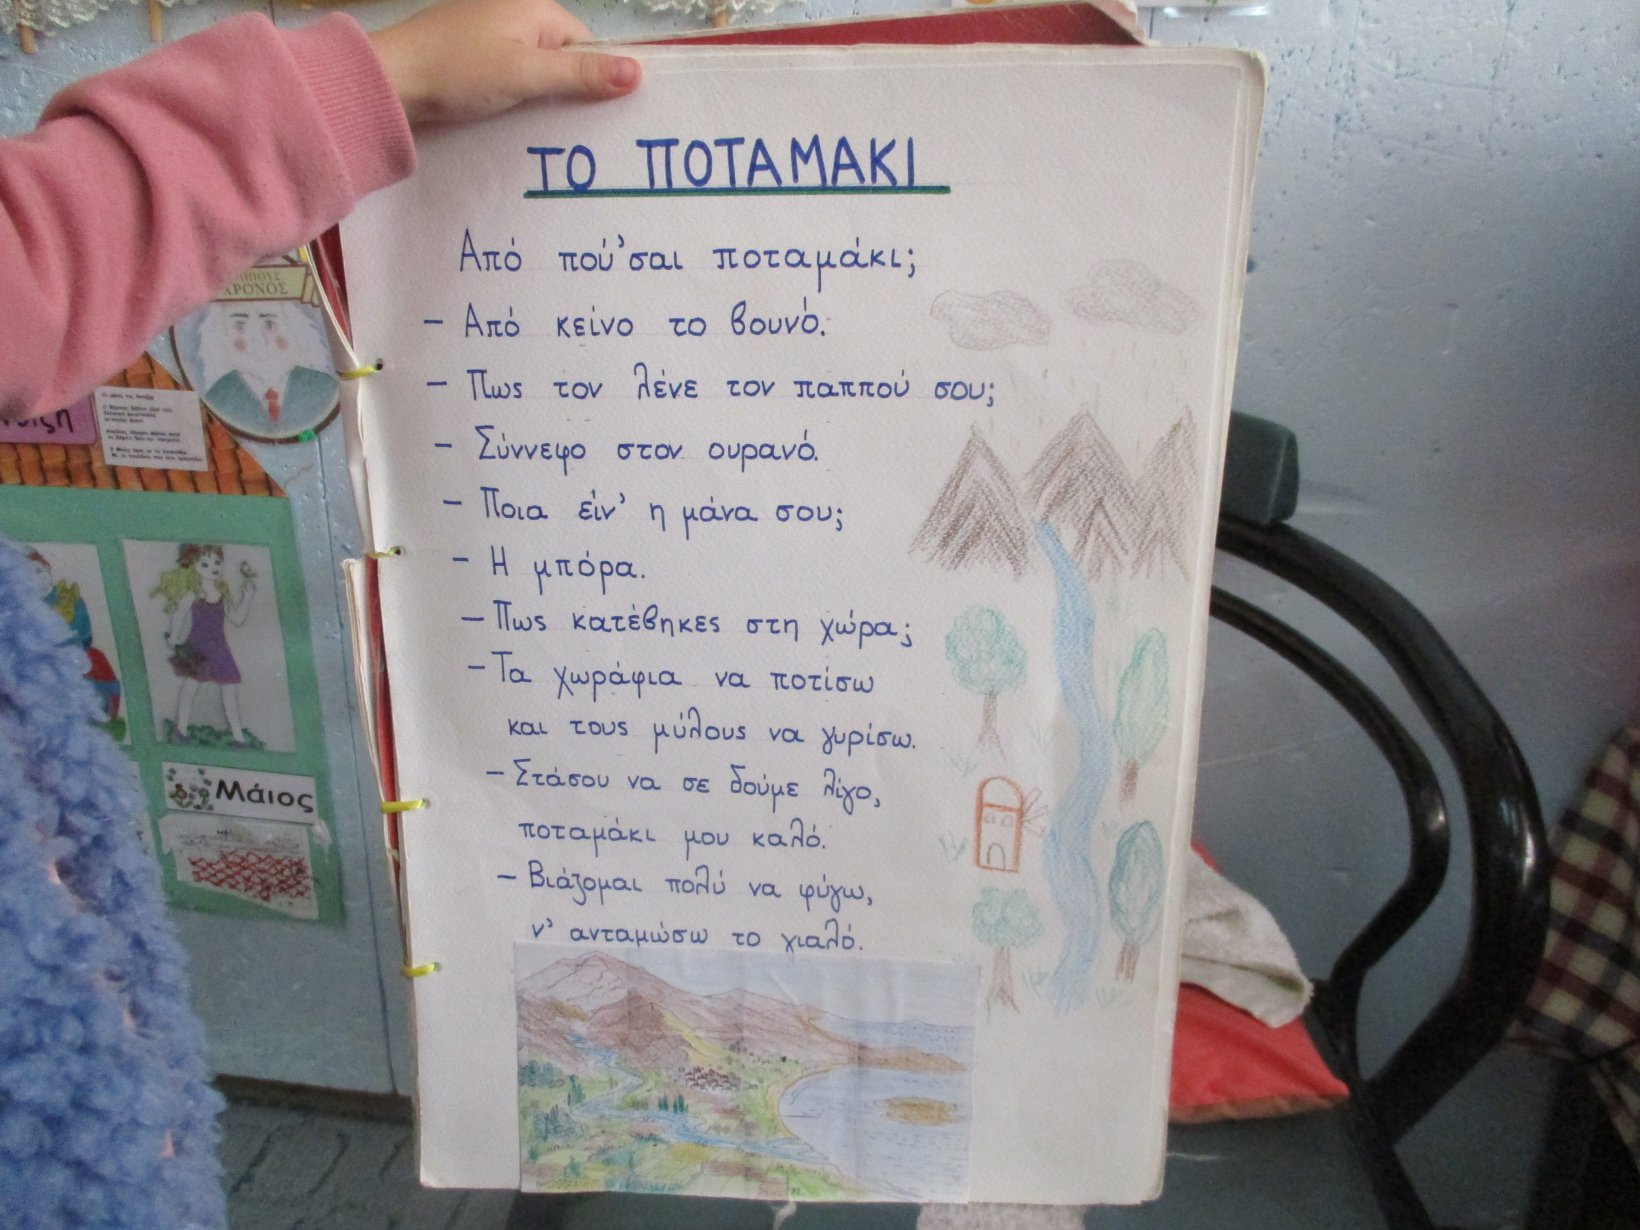 ΤΟ ΠΟΤΑΜΑΚΙ
Από πού'σαι ποταμάκι;
– Από κείνο το βουνό.
– Πως τον λένε τον παππού σου;
– Σύννεφο στον ουρανό.
– Ποια είν' η μάνα σου;
– Η μπόρα.
– Πως κατέβηκες στη χώρα;
– Τα χωράφια να ποτίσω
και τους μύλους να γυρίσω.
– Στάσου να σε δούμε λίγο,
ποταμάκι μου καλό.
– Βιάζομαι πολύ να φύγω,
ν' ανταμώσω το γιαλό.
ΧΡΟΝΟΣ
Μάιος